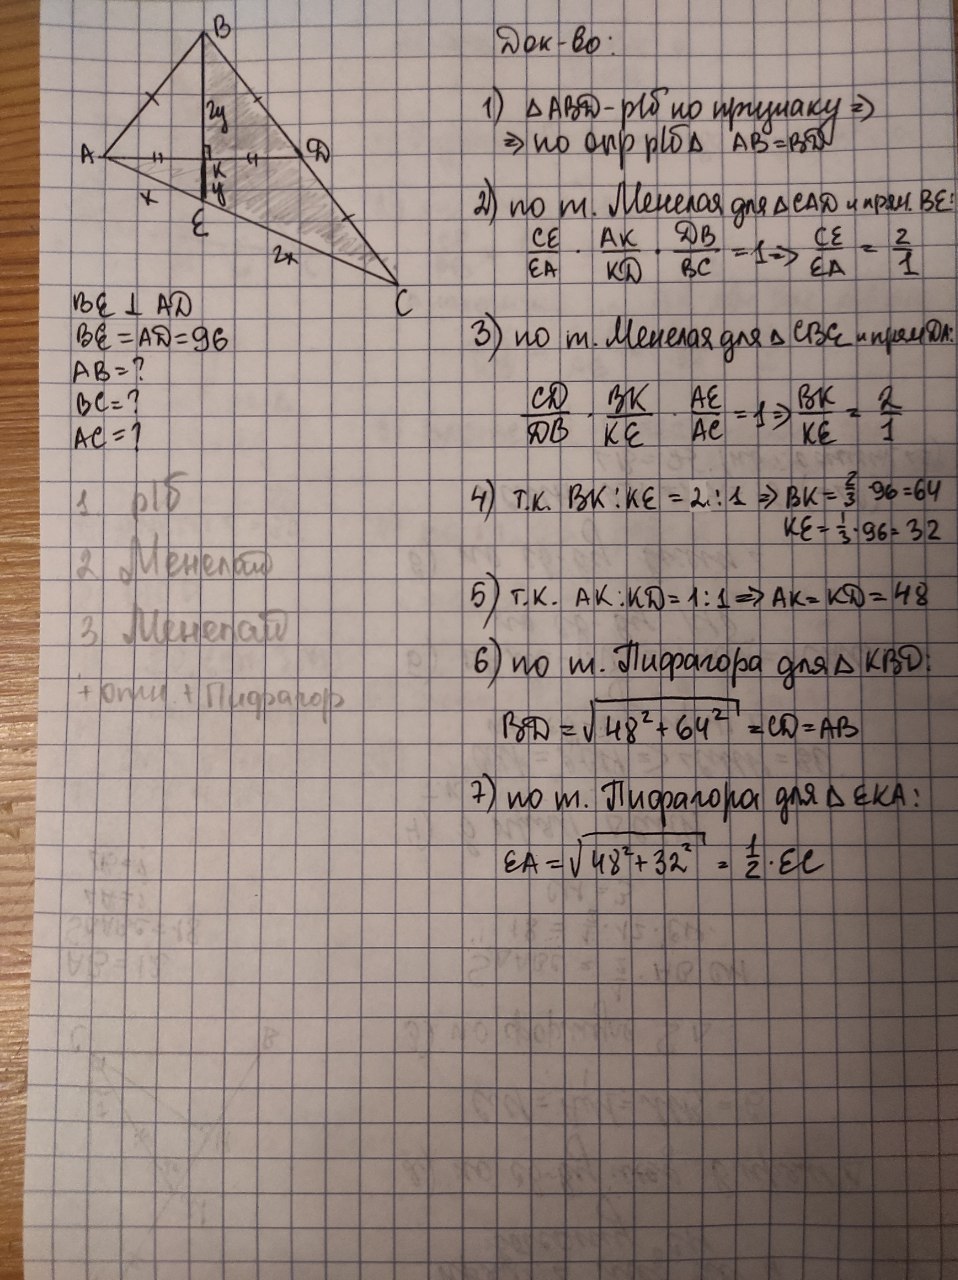 B
2y
A
D
K
x
y
E
2x
C
BE ⊥ AD
BE = AD = 96
AB = ?
BC = ?
AC = ?
1 р/б
2 Менелай
3 Менелай
+ отн + Пифагор
Док-во:
1) △ ABD - р/б по признаку ⇒
⇒ по опр р/б △ AB = BD
2) по т. Менелая для △ CAD и прям. BE:
CE/EA · AK/KD · DB/BC = 1 ⇒ CE/EA = 2/1
3) по т. Менелая для △ CBE и прям DA:
CD/DB · BK/KE · AE/AC = 1 ⇒ BK/KE = 2/1
4) т.к. BK : KE = 2 : 1 ⇒ BK = 2/3 96 = 64
KE = 1/3 · 96 = 32
5) т.к. AK : KD = 1 : 1 ⇒ AK = KD = 48
6) по т. Пифагора для △ KBD:
BD = √(48² + 64²) = CD = AB
7) по т. Пифагора для △ EKA:
EA = √(48² + 32²) = 1/2 · EC